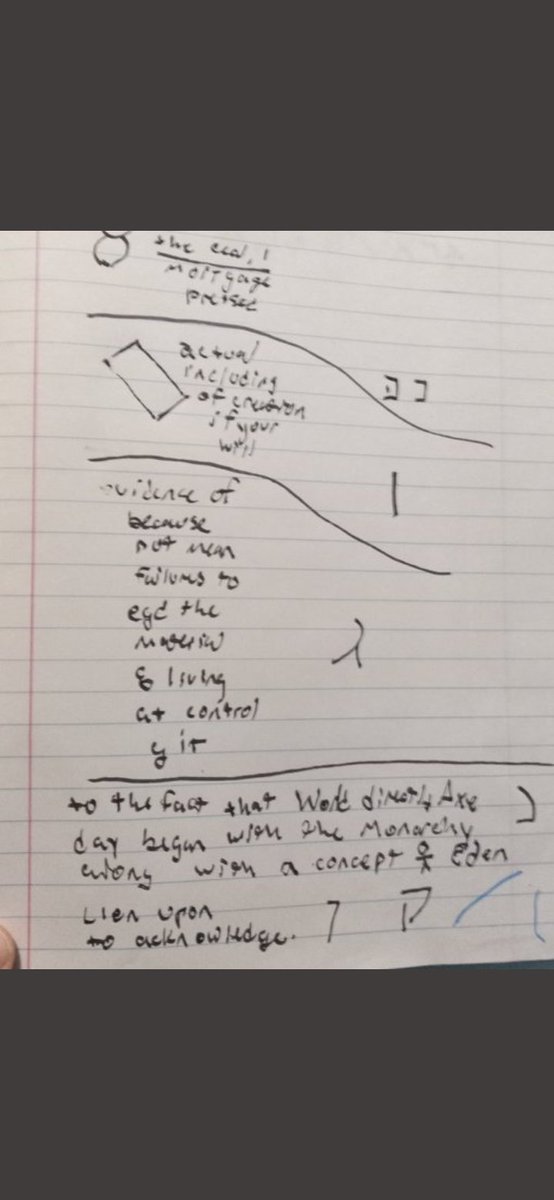 the
mortgage
actual
including
of creation
if your
will
evidence of
because
not mean
failures to
egd the
material
& living
at control
y it
to the fact that World directly Axe
day began with the Monarchy
along with a concept Eden
Lien upon
to acknowledge.